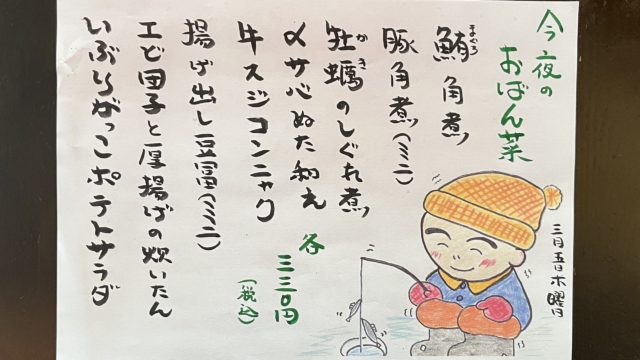 今夜の
おばん菜
鮪角煮
まぐろ
豚角煮(ミニ)
牡蠣のしぐれ煮
かき
〆サバぬた和え
牛スジコンニャク
揚げ出し豆富(ミニ)
エビ団子と厚揚げの炊いたん
いぶりがっこポテトサラダ
各
三三〇円
(税込)
三月五日木曜日